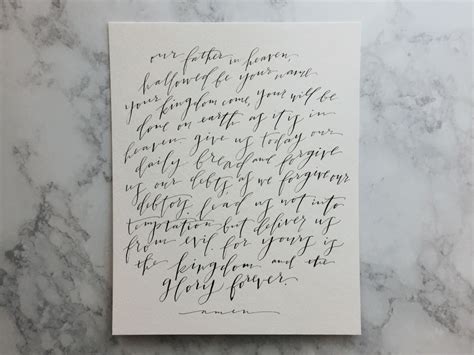 our father in heaven,
hallowed be your name
your kingdom come, your will be
done on earth as it is in
heaven give us today our
daily bread and forgive
us our debts, as we forgive our
debtors. lead us not into
temptation but deliver us
from evil. for yours is
the kingdom and the
glory forever.
amen